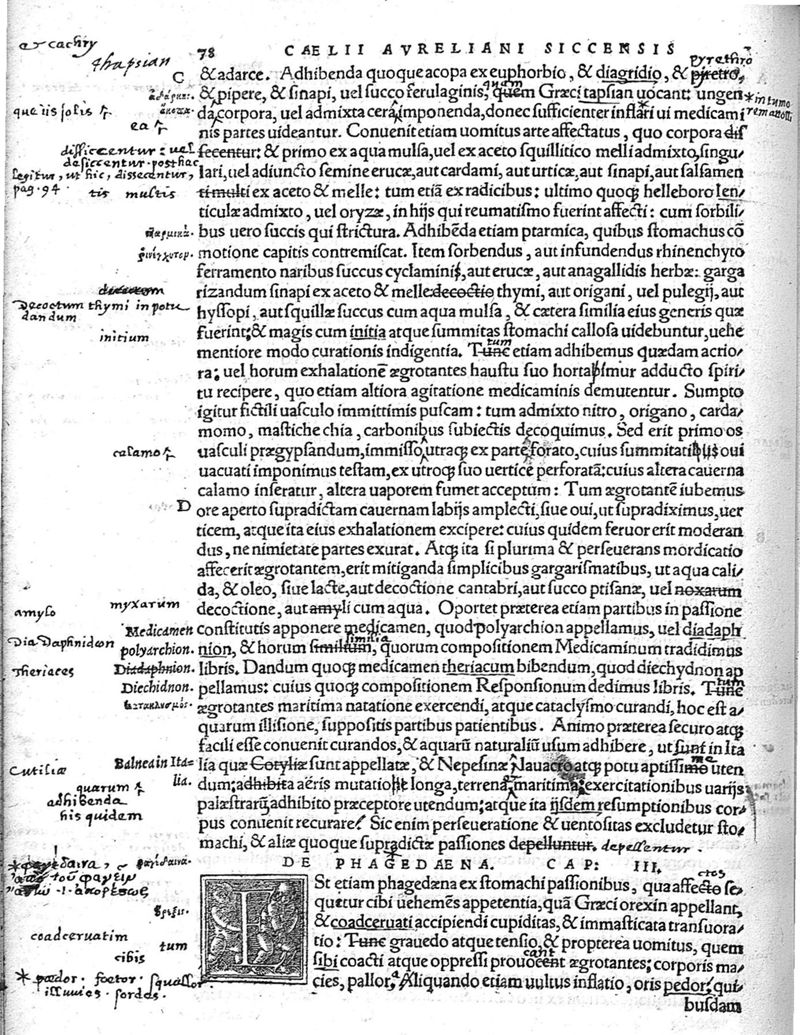 et cachry
thapsian
78 CAELII AVRELIANI SICCENSIS
pyrethro
C & adarce. Adhibenda quoque acopa ex euphorbio, & diagridio, & pyretro,
& pipere, & sinapi, uel succo ferulaginis, quem Græci tapsian uocant: ungen
quam
* in tumo
rem attolli
que iis solis
ea
da corpora, uel admixta cera, imponenda, donec sufficienter inflari ui medicami
nis partes uideantur. Conuenit etiam uomitus arte affectatus, quo corpora dis
disficcentur: uel
desiccentur. posthac
legitur, ut hic, dissecentur,
pag. 94
tis multis
secentur: & primo ex aqua mulsa, uel ex aceto squillitico melli admixto, singu/
lari, uel adiuncto semine erucæ, aut cardami, aut urticæ, aut sinapi, aut salsamen
timulti ex aceto & melle: tum etiã ex radicibus: ultimo quoq; helleboro len/
ticulæ admixto, uel oryzæ, in hijs qui reumatismo fuerint affecti: cum sorbili/
bus uero succis qui strictura. Adhibẽda etiam ptarmica, quibus stomachus cõ
motione capitis contremiscat. Item sorbendus, aut infundendus rhinenchyto
ferramento naribus succus cyclaminis, aut erucæ, aut anagallidis herbæ: garga
rizandum sinapi ex aceto & melle decoctio thymi, aut origani, uel pulegij, aut
Decoctum thymi in potu
dandum
hyssopi, aut squillæ succus cum aqua mulsa, & cætera similia eius generis quæ
initium
fuerint; & magis cum initia atque summitas stomachi callosa uidebuntur, uehe
mentiore modo curationis indigentia. Tunc etiam adhibemus quædam acrio/
tum
ra; uel horum exhalationẽ ægrotantes haustu suo hortabimur adducto spiri/
tu recipere, quo etiam altiora agitatione medicaminis demutentur. Sumpto
igitur fictili uasculo immittimis puscam: tum admixto nitro, origano, carda/
momo, mastiche chia, carbonibus subiectis decoquimus. Sed erit primo os
calamo
uasculi prægypsandum, immisso, utraq; ex parte forato, cuius summitatibus oui
uacuati imponimus testam, ex utroq; suo uertice perforatã: cuius altera cauerna
calamo inseratur, altera uaporem fumet acceptum: Tum ægrotantẽ iubemus
D ore aperto supradictam cauernam labijs amplecti, siue oui, ut supradiximus, uer
ticem, atque ita eius exhalationem excipere: cuius quidem feruor erit moderan
dus, ne nimietate partes exurat. Atq; ita si plurima & perseuerans mordicatio
affecerit ægrotantem, erit mitiganda simplicibus gargarismatibus, ut aqua cali/
da, & oleo, siue lacte, aut decoctione cantabri, aut succo ptisanæ, uel noxarum
amylo myxarum
decoctione, aut amyli cum aqua. Oportet præterea etiam partibus in passione
Medicamen
constitutis apponere medicamen, quod polyarchion appellamus, uel diadaph
Dia Daphnidon polyarchion.
similia
nion, & horum similium, quorum compositionem Medicaminum tradidimus
Theriaces Diadaphnion.
libris. Dandum quoq; medicamen theriacum bibendum, quod diechydnon ap
Diechidnon.
pellamus: cuius quoq; compositionem Responsionum dedimus libris. Tunc
tum
ægrotantes maritima natatione exercendi, atque cataclysmo curandi, hoc est a/
quarum illisione, suppositis partibus patientibus. Animo præterea securo atq;
facili esse conuenit curandos, & aquarũ naturaliũ usum adhibere, ut sunt in Ita
Cutiliæ Balnea in Ita=
lia.
lia quæ Cotyliæ sunt appellatæ, & Nepesinæ
atq; potu aptissimo uten
me
quarum
adhibenda
his quidem
dum; adhibita aëris mutatio
longa, terrena, maritima; exercitationibus uarijs
palæstrarũ, adhibito præceptore utendum; atque ita ijsdem resumptionibus cor/
pus conuenit recurare. Sic enim perseueratione & uentositas excludetur sto/
machi, & aliæ quoque supradictæ passiones depelluntur. depellentur.
DE PHAGEDAENA. CAP: III.
Est etiam phagedæna ex stomachi passionibus, qua affecto se/
ctos
quitur cibi uehemẽs appetentia, quã Græci orexin appellant,
coadceruatim
& coadceruati accipiendi cupiditas, & immasticata transuora/
tum
cibis
tio: Tunc grauedo atque tensio, & propterea uomitus, quem
sibi coacti atque oppressi prouocent ægrotantes; corporis ma/
cant
* pædor. foetor. squallor
illuuies. sordes.
cies, pallor. Aliquando etiam uultus inflatio, oris pedor, qui/
busdam